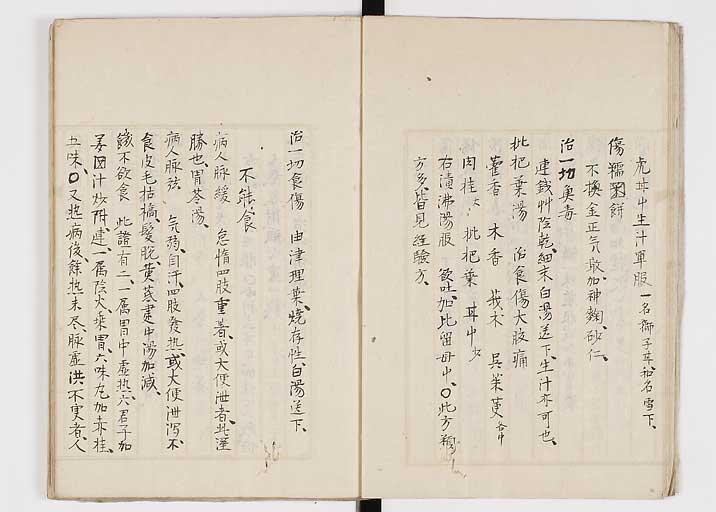 虎耳中生汁單服 一名獅子草和名雪下、
傷糯米餅
不換金正气散加神麴、砂仁、
治一切魚毒
連錢艸陰乾、細末白湯送下、生汁亦可也、
枇杷葉湯 治食傷大腹痛
藿香 木香 莪朮 呉茱萸各中
肉桂大 枇杷葉 甘中少
右漬沸湯服 欲吐、加比留毋中、〇此方
方多、皆見経驗方、
治一切食傷 由津理葉、燒存性、白湯送下、
不能食
病人脉緩 怠惰四肢重着、或大便泄者、此湿
勝也、胃苓湯、
病人脉弦 气弱、自汗、四肢發热、或大便泄泻、不
食、皮毛枯槁、髮脱、黄芪建中湯加減、
餓不飲食 此證有二、一属胃中虚热、六君子加
姜因汁炒附、連、一属陰火、乘胃、六味丸加赤桂、
五味、〇又热病後、餘热未尽、脉虚洪不実者、人